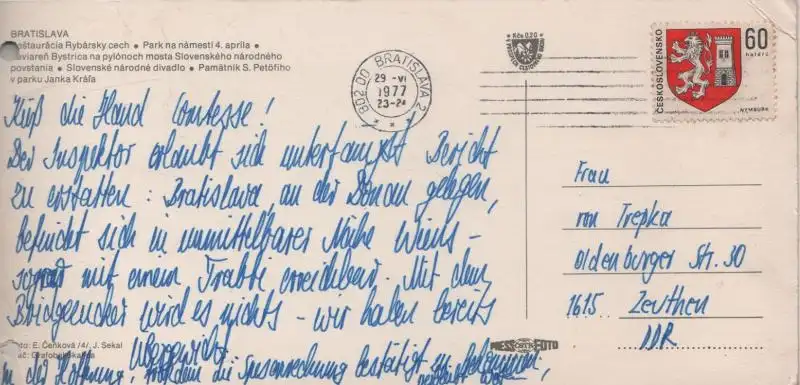 BRATISLAVA
eštaurácia Rybársky cech • Park na námestí 4. apríla •
aviareň Bystrica na pylónoch mosta Slovenského národného
povstania • Slovenské národné divadlo • Pamätník S. Petőfiho
v parku Janka Kráľa
Kčs 0,20
802 00 BRATISLAVA 2
29 -VI
1977
23-24
ČESKOSLOVENSKO
60
haléřů
NYMBURK
Küß die Hand Comtesse!
Der Inspektor erlaubt sich untertänigst Bericht
zu erstatten: Bratislava, an der Donau gelegen,
befindet sich in unmittelbarer Nähe Wiens –
sogar mit einem Trabbi erreichbar. Mit dem
wird es nichts – wir haben bereits
In der Hoffnung, die Spesenrechnung bestätigt zu bekommen,
Frau
von Trepka
Oldenburger Str. 30
1615 Zeuthen
DDR
oto: E. Čenková /4/, J. Sekal
PRESSFOTO